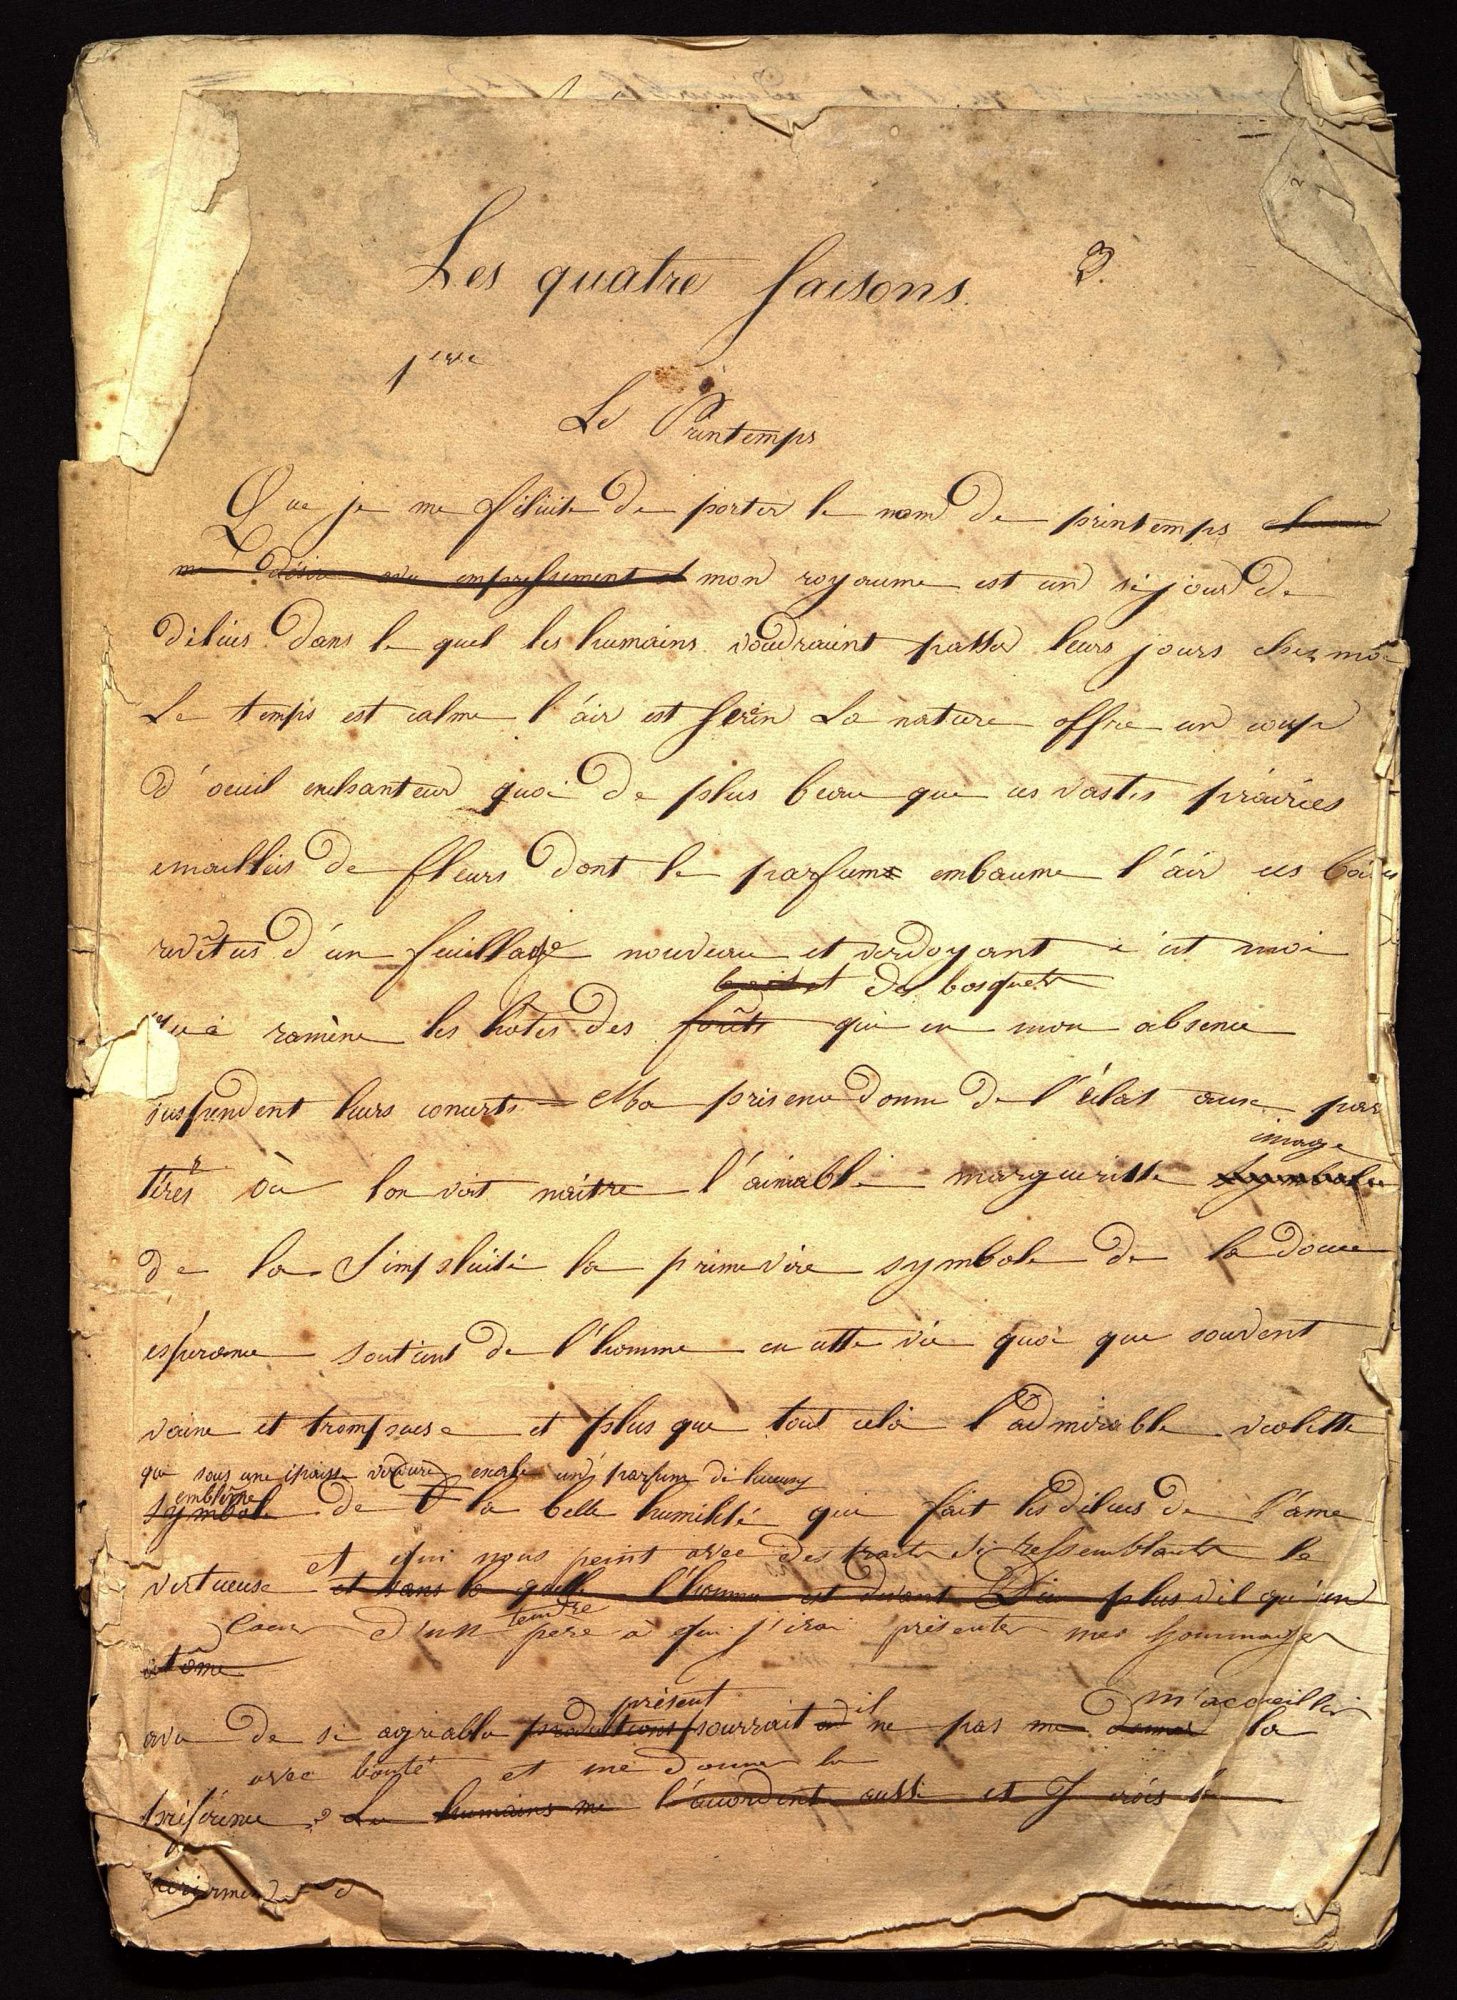 Les quatre saisons. 3.
1ere
Le Printemps
Que je me félicite de porter le nom de printemps
me désire avec empressement et mon royaume est un séjour de
délices dans le quel les humains voudraient passer leurs jours chez moi
Le temps est calme l'air est serein La nature offre un coup
d'oeuil enchanteur quoi de plus beau que ces vastes prairies
emaillées de fleurs dont le parfum embaume l'air ces bois
revêtus d'un feuillage nouveau et verdoyant c'est moi
et des bosquets
qui ramène les hôtes des forêts qui en mon absence
suspendent leurs concerts = Ma présence donne de l'éclat aux par
image
terres où lon voit naitre l'aimable margueritte symbole
de la simplicité la primevère symbole de la douce
espérance soutient de l'homme en cette vie quoi que souvent
vaine et trompeuse et plus que tout cela l'admirable violette
qui sous une épaisse verdure exale un parfum délicieux
emblême
symbole de la belle humilité qui fait les délices de l'ame
et qui nous peint avec des traits si ressemblants le
vertueuse et sans la quelle l'homme est devant Dieu plus vil qu'un
coeur d'un tendre pere a qui j'irai présenter mes hommages
atôme
présent m'accueillir
avec de si agréable productions pourrait il ne pas me donner la
avec bonté et me donner la
préférence ? Les humains me l'accordent aussi et J'irois